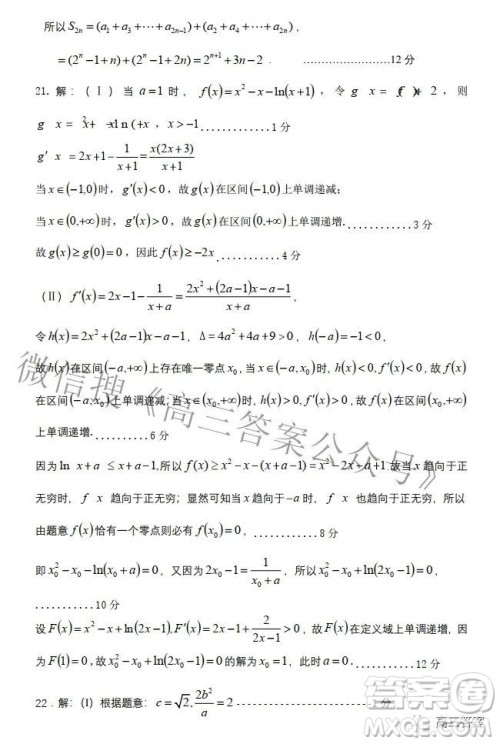 所以 S₂ₙ = (a₁ + a₃ + ⋯ + a₂ₙ₋₁) + (a₂ + a₄ + ⋯ + a₂ₙ),
= (2ⁿ - 1 + n) + (2ⁿ - 1 + 2n) = 2ⁿ⁺¹ + 3n - 2 . ........................12 分
21. 解：(Ⅰ) 当 a = 1 时， f(x) = x² - x - ln(x+1) ，令 g x = f x + 2 ，则
g x = x² + x - ln(+ , x > -1 ............1 分
g′ x = 2x + 1 - 1/(x+1) = x(2x+3)/(x+1)
当 x ∈ (-1,0) 时， g′(x) < 0 ，故 g(x) 在区间 (-1,0) 上单调递减；
当 x ∈ (0,+∞) 时， g′(x) > 0 ，故 g(x) 在区间 (0,+∞) 上单调递增. ............3 分
故 g(x) ≥ g(0) = 0 ，因此 f(x) ≥ -2x ............4 分
(Ⅱ) f′(x) = 2x - 1 - 1/(x+a) = (2x² + (2a-1)x - a - 1)/(x+a) ，
令 h(x) = 2x² + (2a-1)x - a - 1 ， Δ = 4a² + 4a + 9 > 0 ， h(-a) = -1 < 0 ，
故 h(x) 在区间 (-a,+∞) 上存在唯一零点 x₀ ，当 x ∈ (-a,x₀) 时， h(x) < 0 ， f′(x) < 0 ，故 f(x)
在区间 (-a,x₀) 上单调递减；当 x ∈ (x₀,+∞) 时， h(x) > 0 ， f′(x) > 0 ，故 f(x) 在区间 (x₀,+∞)
上单调递增. ............6 分
因为 ln x + a ≤ x + a - 1, 所以 f(x) ≥ x² - x - (x+a-1) = x² - 2x - a + 1 故当 x 趋向于正无
穷时， f x 趋向于正无穷；显然可知当 x 趋向于 -a 时， f x 也趋向于正无穷！所以
由题意 f(x) 恰有一个零点则必有 f(x₀) = 0 ， ............8 分
即 x₀² - x₀ - ln(x₀ + a) = 0 ，又因为 2x₀ - 1 = 1/(x₀+a) ，所以 x₀² - x₀ + ln(2x₀ - 1) = 0 ，
...........10 分
设 F(x) = x² - x + ln(2x-1), F′(x) = 2x - 1 + 2/(2x-1) > 0 ，故 F(x) 在定义域上单调递增，因
为 F(1) = 0 ，故 F(x₀) = 0 的解为 x₀ = 1 ，此时 a = 0 ............12 分
22．解：(I) 根据题意： c = √2, 2b²/a = 2 ............1 分
微信搜《高三答案公众号》
答案圈